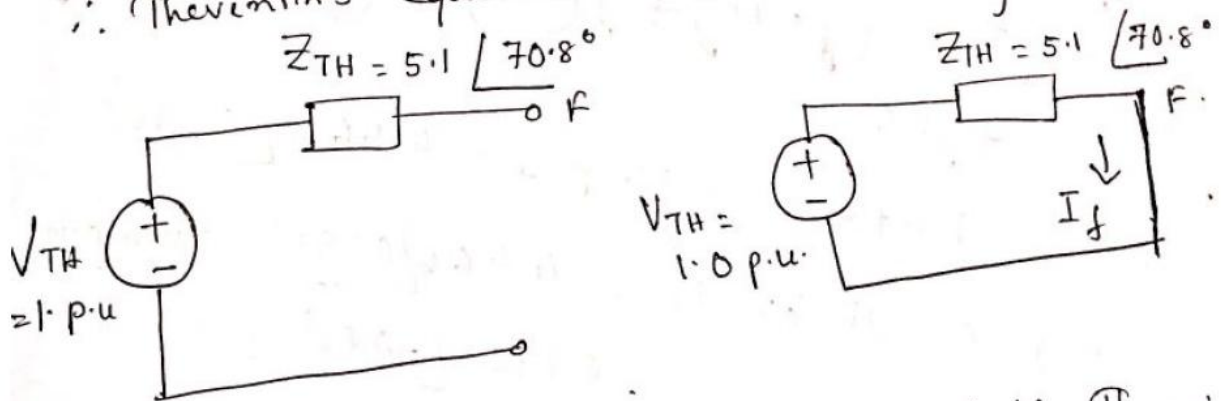 ∴ Thevenin's
Z_TH = 5.1 ∠70.8°
F
V_TH
=1. p.u
Z_TH = 5.1 ∠70.8°
F.
V_TH =
1.0 p.u.
I_f
+
-
+
-